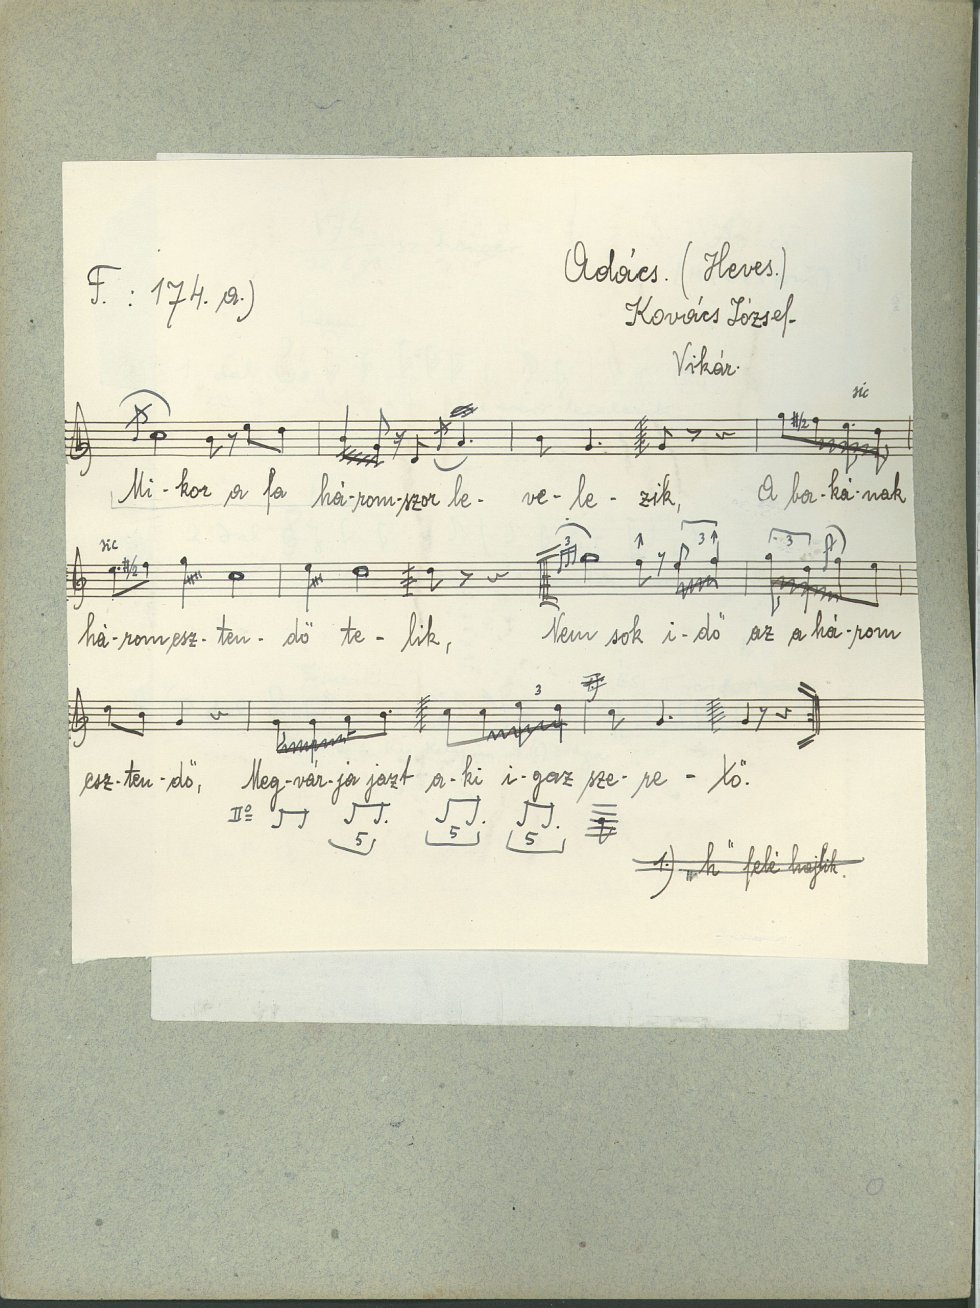 F. : 174. a.)
Adács. (Heves.)
Kovács József.
Vikár.
sic
#/2
Mi - kor a fa há-rom-szor le - ve - le - zik, A ba-ká-nak
sic
#/2
3 3 3
há-rom esz-ten-dő te - lik, Nem sok i-dő az a há-rom
3
esz-ten-dő, Meg-vár-ja jazt a-ki i-gaz sze-re - tő.
IIº
5 5 5
1.) „h" felé hajlik.